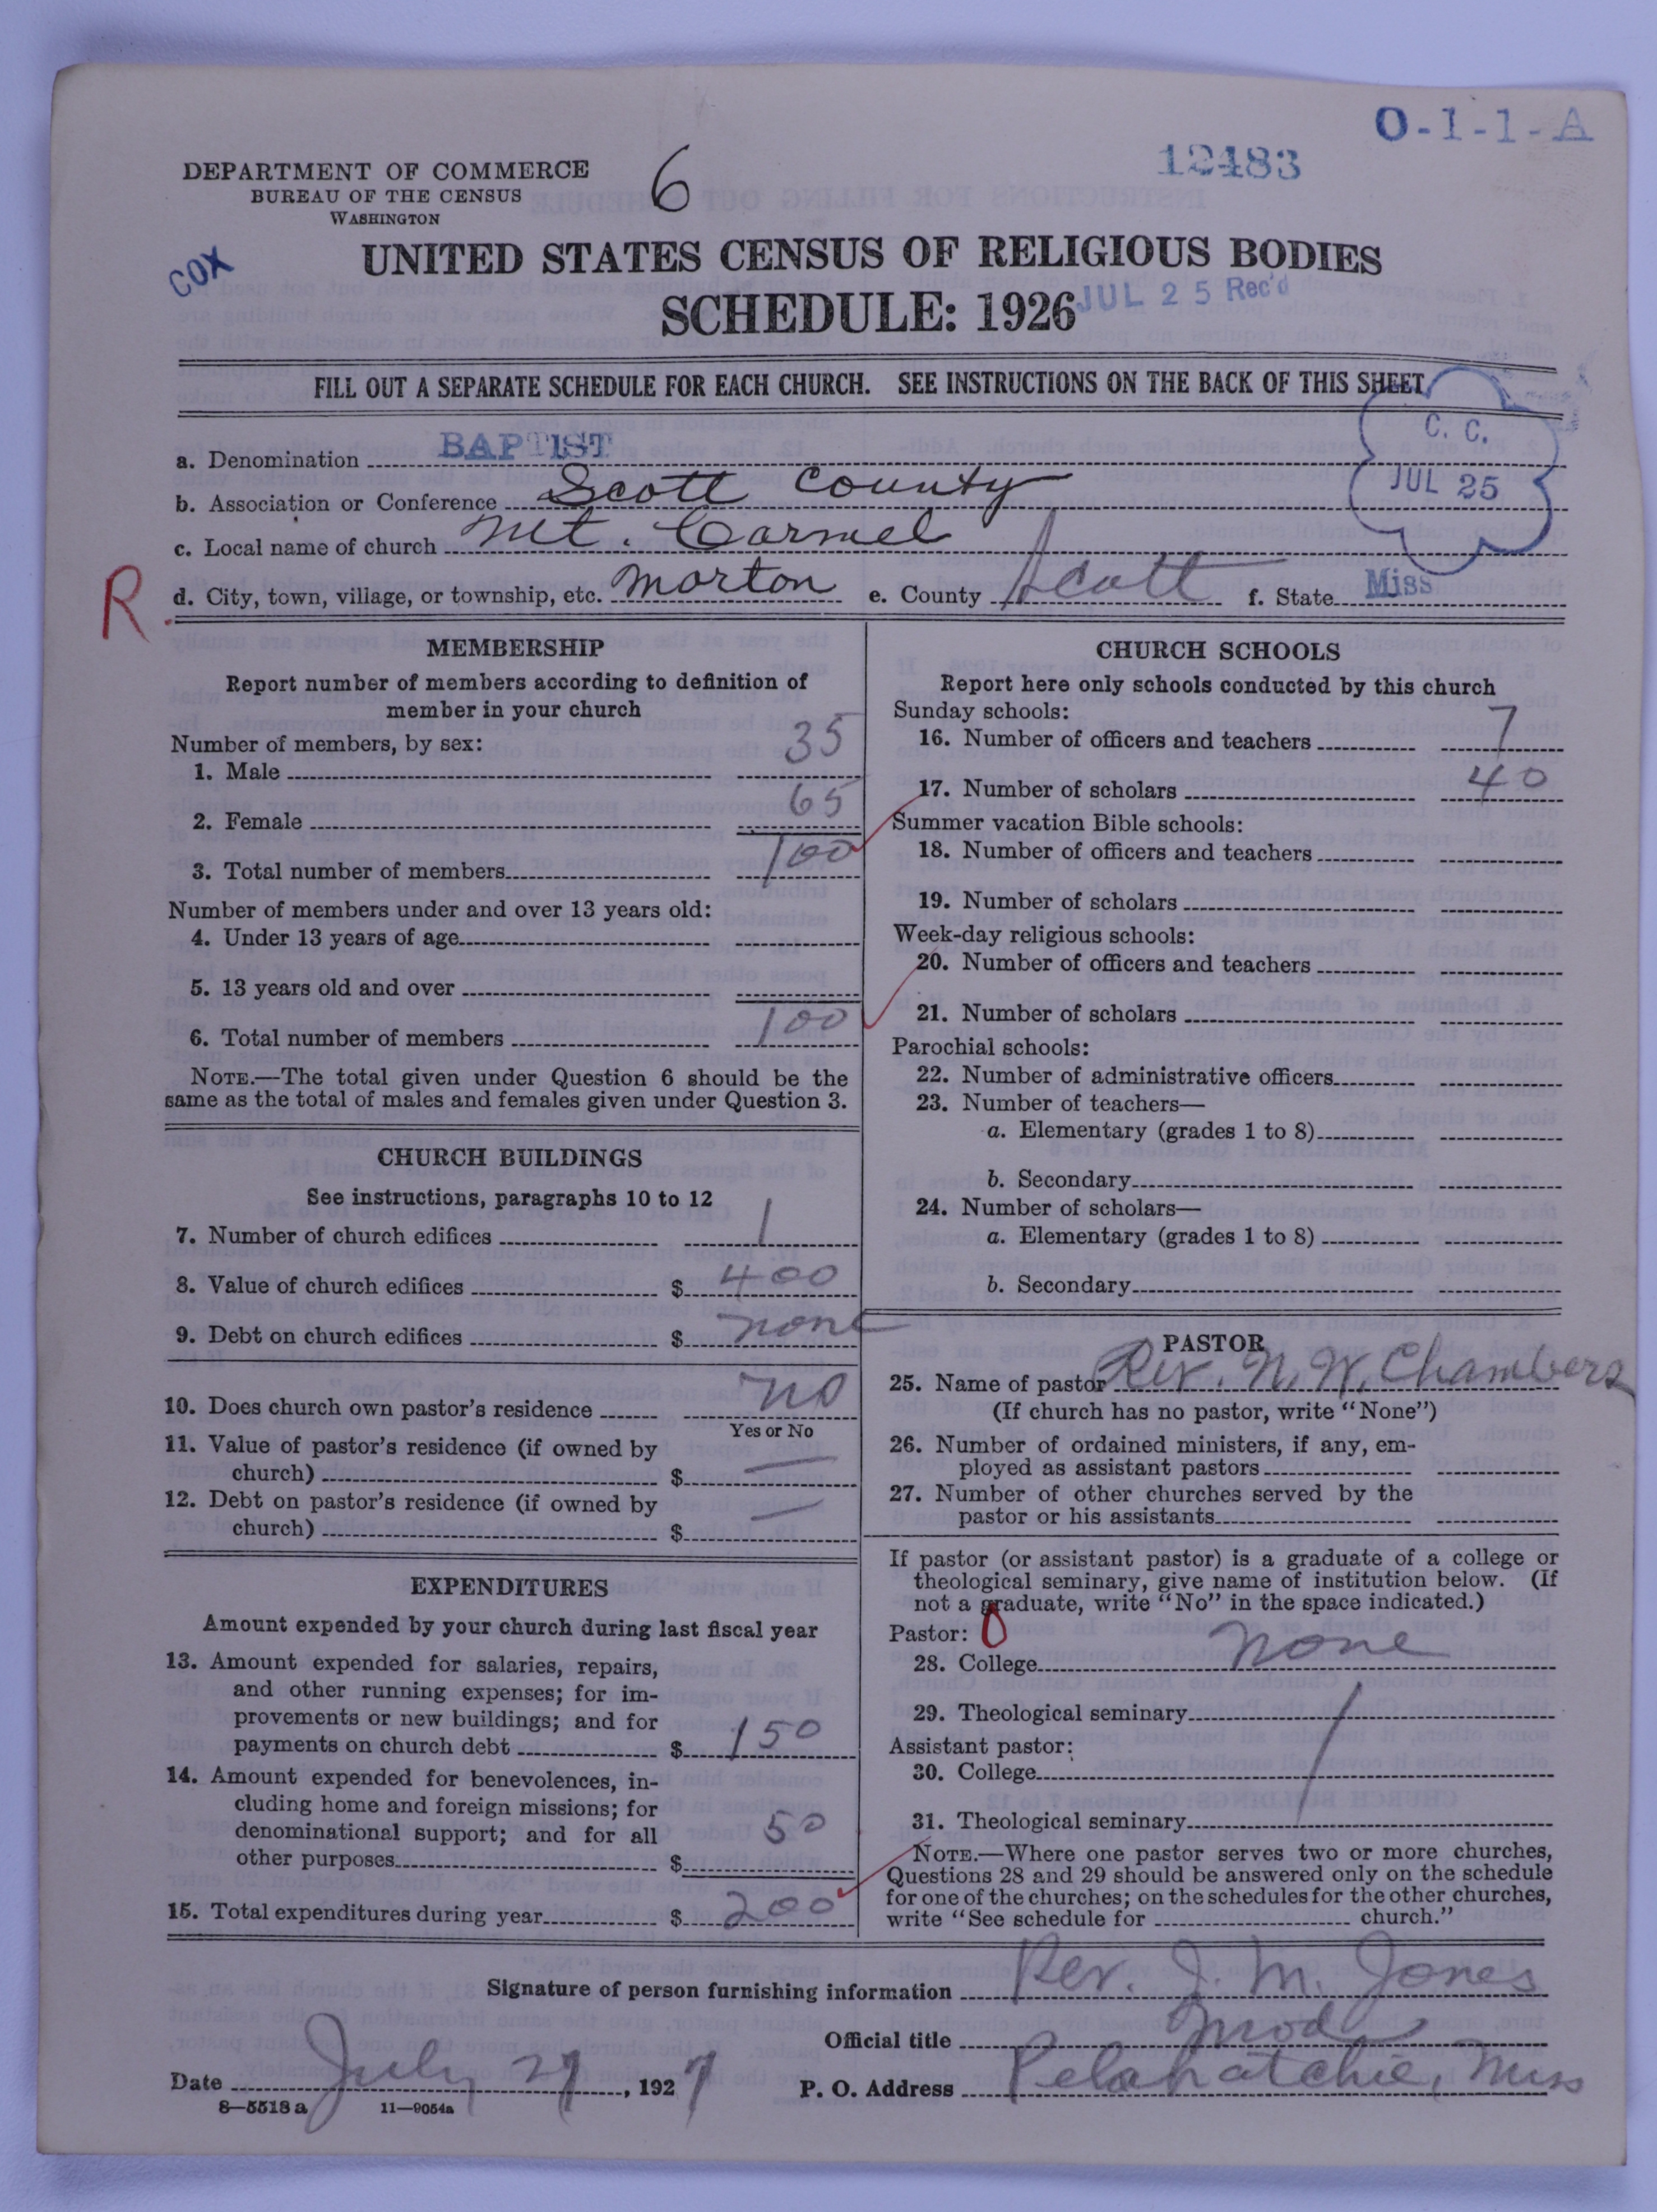 O-1-1-A
12483
DEPARTMENT OF COMMERCE
BUREAU OF THE CENSUS
WASHINGTON
6
COX
UNITED STATES CENSUS OF RELIGIOUS BODIES
SCHEDULE: 1926
JUL 25 Rec'd
FILL OUT A SEPARATE SCHEDULE FOR EACH CHURCH. SEE INSTRUCTIONS ON THE BACK OF THIS SHEET
C. C.
JUL 25
a. Denomination BAPTIST
b. Association or Conference Scott County
c. Local name of church Mt. Carmel
R.
d. City, town, village, or township, etc. Morton e. County Scott f. State Miss
MEMBERSHIP
Report number of members according to definition of
member in your church
Number of members, by sex:
1. Male 35
2. Female 65
3. Total number of members 100
Number of members under and over 13 years old:
4. Under 13 years of age
5. 13 years old and over
6. Total number of members 100
NOTE.—The total given under Question 6 should be the
same as the total of males and females given under Question 3.
CHURCH BUILDINGS
See instructions, paragraphs 10 to 12
7. Number of church edifices 1
8. Value of church edifices $ 400
9. Debt on church edifices $ none
10. Does church own pastor's residence no
Yes or No
11. Value of pastor's residence (if owned by
church) $ —
12. Debt on pastor's residence (if owned by
church) $ —
EXPENDITURES
Amount expended by your church during last fiscal year
13. Amount expended for salaries, repairs,
and other running expenses; for im-
provements or new buildings; and for
payments on church debt $ 150
14. Amount expended for benevolences, in-
cluding home and foreign missions; for
denominational support; and for all
other purposes $ 50
15. Total expenditures during year $ 200
CHURCH SCHOOLS
Report here only schools conducted by this church
Sunday schools:
16. Number of officers and teachers 7
17. Number of scholars 40
Summer vacation Bible schools:
18. Number of officers and teachers
19. Number of scholars
Week-day religious schools:
20. Number of officers and teachers
21. Number of scholars
Parochial schools:
22. Number of administrative officers
23. Number of teachers—
a. Elementary (grades 1 to 8)
b. Secondary
24. Number of scholars—
a. Elementary (grades 1 to 8)
b. Secondary
PASTOR
25. Name of pastor Rev. N. W. Chambers
(If church has no pastor, write "None")
26. Number of ordained ministers, if any, em-
ployed as assistant pastors
27. Number of other churches served by the
pastor or his assistants
If pastor (or assistant pastor) is a graduate of a college or
theological seminary, give name of institution below. (If
not a graduate, write "No" in the space indicated.)
Pastor: 0
28. College none
29. Theological seminary
Assistant pastor:
30. College
31. Theological seminary
NOTE.—Where one pastor serves two or more churches,
Questions 28 and 29 should be answered only on the schedule
for one of the churches; on the schedules for the other churches,
write "See schedule for church."
Signature of person furnishing information Rev. J. M. Jones
Official title Mod
Date July 21, 1927 P. O. Address Pelahatchie, Miss
8—5518 a 11—9054a